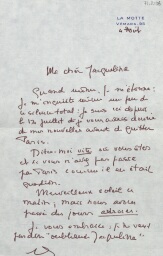 LA MOTTE
VEMARS - 95
4 Août
Ma chère Jacqueline
Quand même, je m'étonne :
je m'inquiète même un peu de
ce silence total : je suis ici depuis
le 12 juillet et je vous avais donné
de mes nouvelles avant de quitter
Paris.
Dites-moi vite où vous êtes
et si vous n'avez pas passé
par Paris comme il en était
question.
Merveilleux soleil ce
matin ; mais nous avons
passé des jours
Je vous embrasse, je ne veux
pas dire "oublieuse Jacqueline"